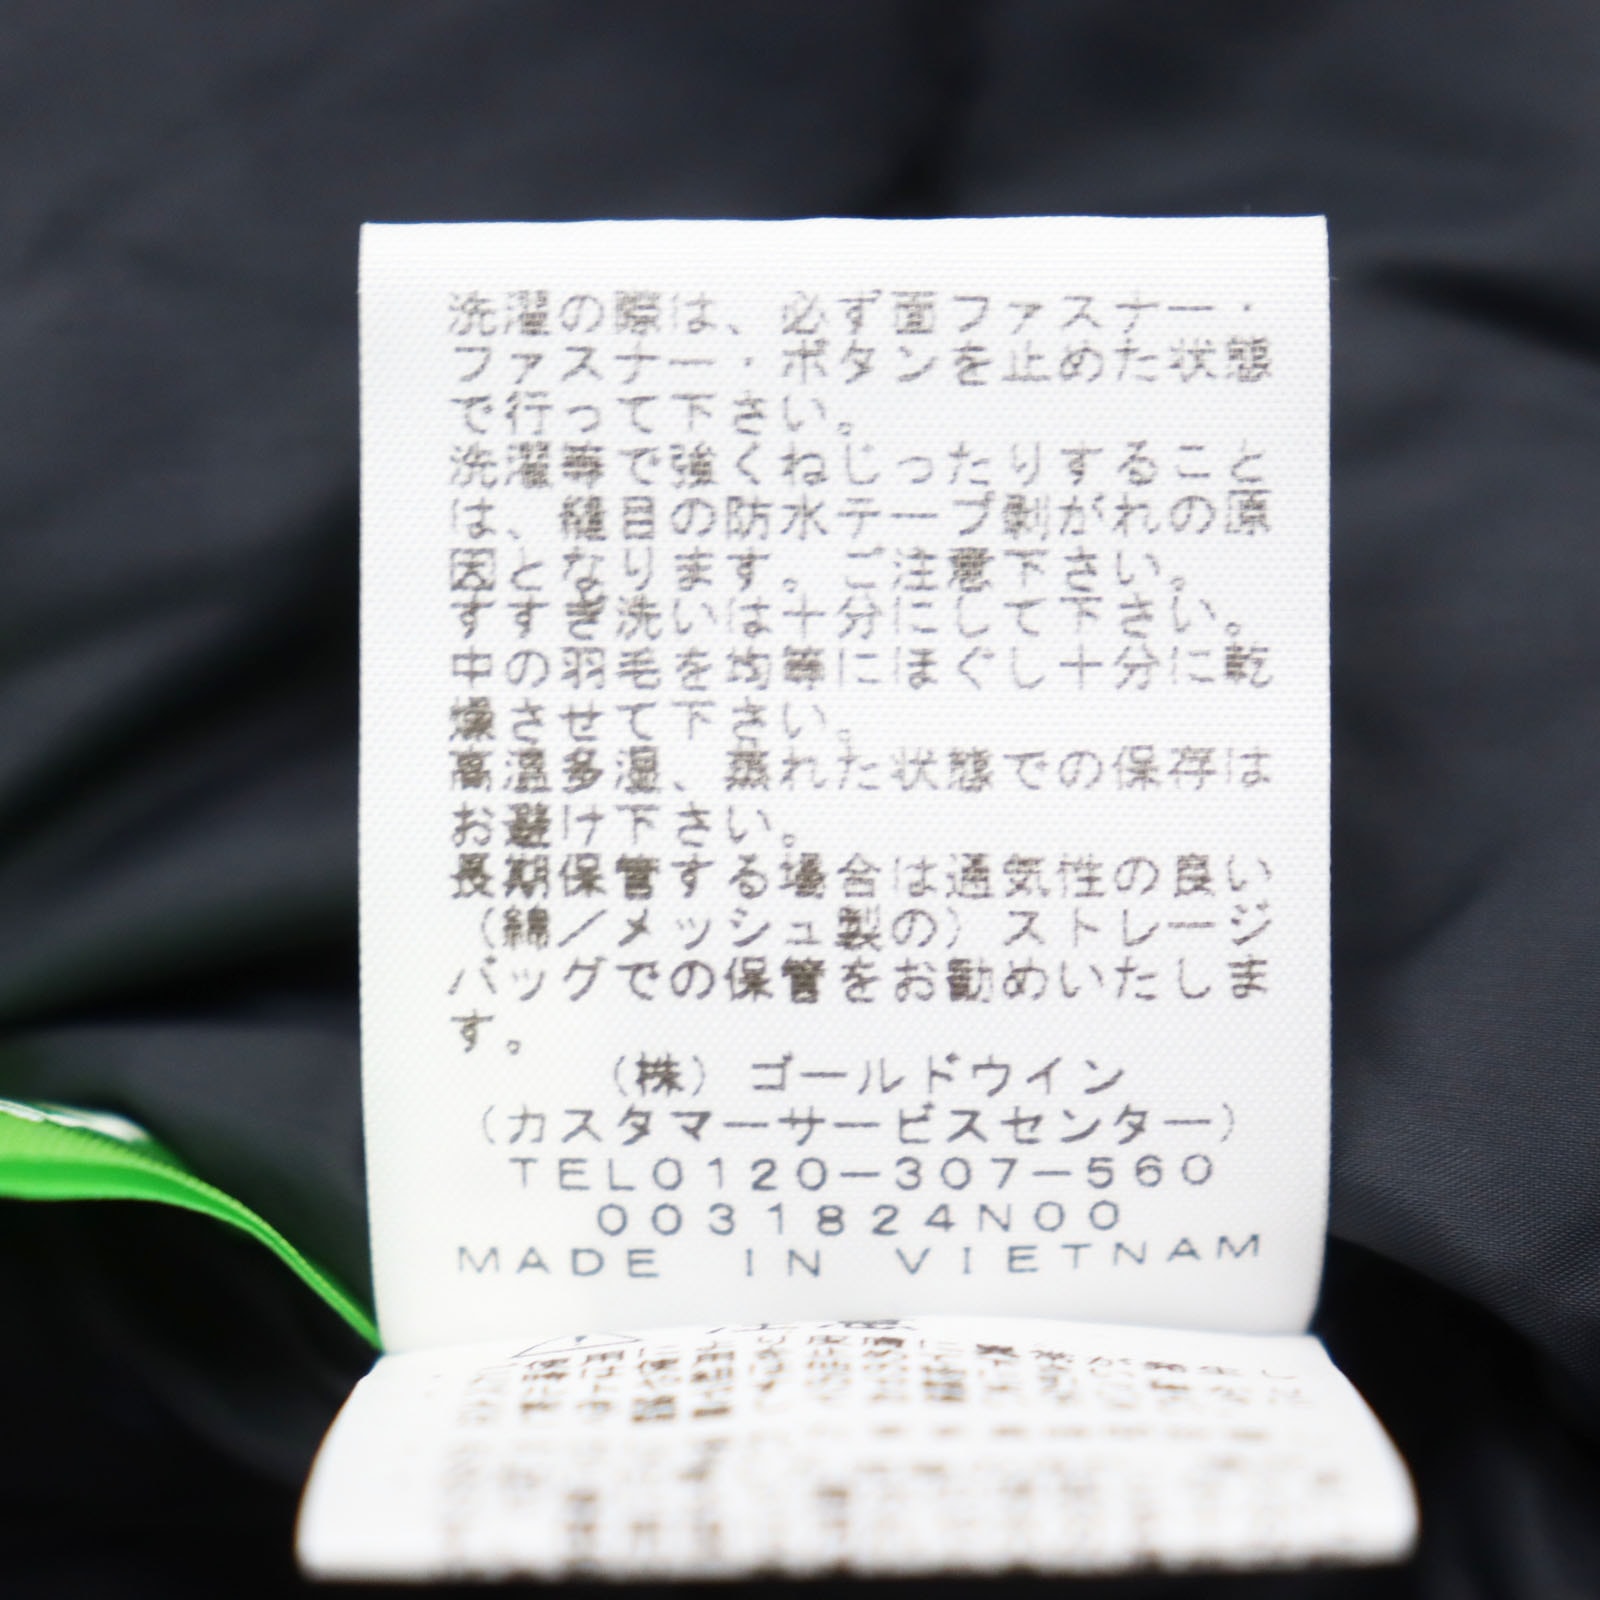 洗濯の際は、必ず面ファスナー・
ファスナー・ボタンを止めた状態
で行って下さい。
洗濯等で強くねじったりすること
は、縫目の防水テープ剥がれの原
因となります。ご注意下さい。
すすぎ洗いは十分にして下さい。
中の羽毛を均等にほぐし十分に乾
燥させて下さい。
高温多湿、蒸れた状態での保存は
お避け下さい。
長期保管する場合は通気性の良い
（綿／メッシュ製の）ストレージ
バッグでの保管をお勧めいたしま
す。
（株）ゴールドウイン
（カスタマーサービスセンター）
TEL0120-307-560
0031824N00
MADE IN VIETNAM